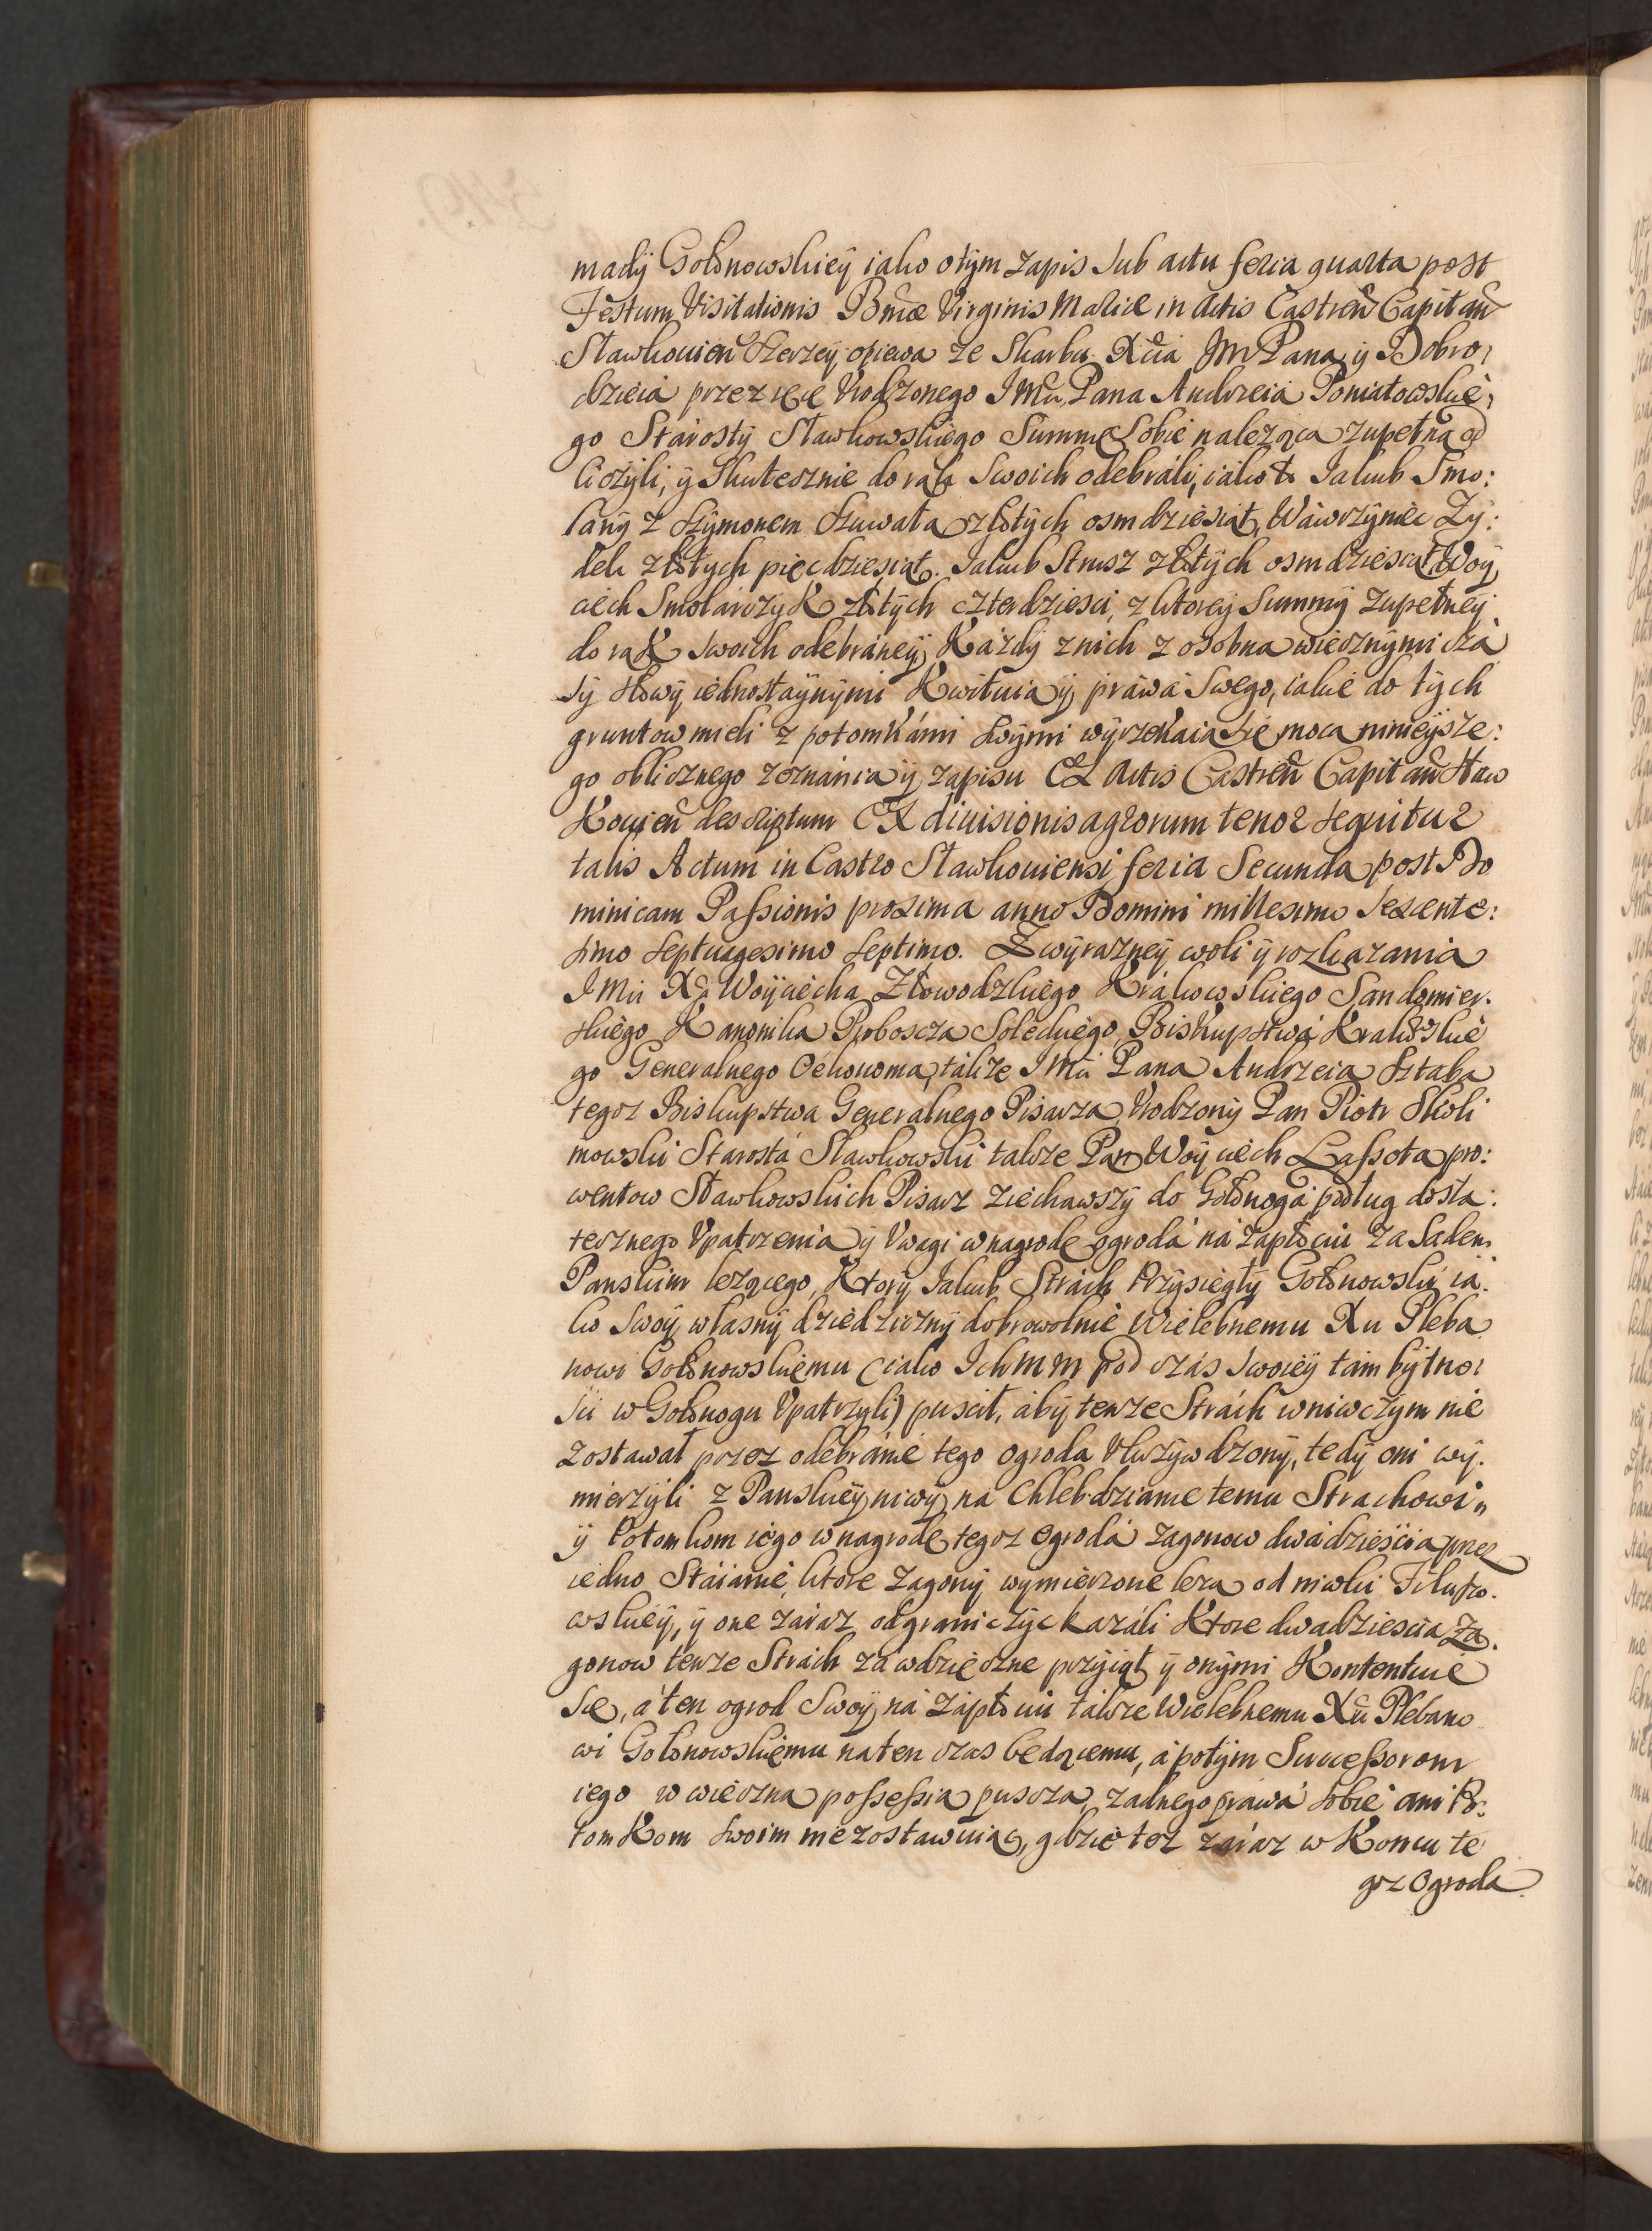 mady Gołonowskiey iako o tym zapis sub actu feria quarta post
Festum Visitationis Bmae Virginis Mariae in Actis Castreñ Capitañ
Sławkouieñ szerzey opiewa ze Skarbu Xcia Jm Pana y Dobro:
dzieia przez ręce Vrodzonego JMci Pana Andrzeia Poniatowskie:
go Starosty Sławkowskiego Summę sobie nalezącą zupełną od
liczyli, y skutecznie do rąk swoich odebrali, iako to Iakub Smo:
lany z Szymonem Szuwałą złotych osmdziesiąt, Wawrzyniec Zy:
dek złotych pięcdziesiąt. Iakub Strusz złotych osmdziesiąt Woy
ciech Smolarczyk złotych czterdziesci, z ktorey Summy zupełney
do rąk swoich odebraney, Kazdy z nich z osobna wiecznymi cza
sy słowy iednostaynymi Kwituią y prawa swego, iakie do tych
gruntow mieli z potomkámi swymi wyrzekaią się mocą ninieysze:
go oblicznego zeznánia y zapisu Ex Actis Castreñ Capitañ Sław
Kouieñ descriptum Ex diuisionis agrorum tenor sequitur
talis Actum in Castro Sławkouiensi feria Secunda post Do
minicam Passionis proxima anno Domini millesimo sexcente:
simo septuagesimo septimo. Z wyrazney woli y rozkazania
JMci Xa Woyciecha Złowodzkiego Krákowskiego Sandomier.
skiego Kanonika Proboscza Soleckiego, Biskupstwá Krakowskie
go Generalnego Oekonoma, takze JMci Pana Andrzeia Sztaba
tegoz Biskupstwa Generalnego Pisarza Vrodzony Pan Piotr Skoli
mowski Starosta Sławkowski takze Pan Woyciech Lassota pro:
wentow Sławkowskich Pisarz ziechawszy do Gołonogá podług dosta:
tecznego Vpatrzenia y Vwagi w nagrodę ogrodá ná Zapłociu za Sadem
Panskim lezącego, Ktory Iakub Strách Przysięgły Gołonowski ia:
ko swoy własny dziedziczny dobrowolnie Wielebnemu Xu Pleba
nowi Gołonowskiemu (iako Ichmm pod czás swoiey tám bytno:
ści w Gołonogu Vpatrzyli) puscił, áby tenze Strách w niwczym nie
zostawał przez odebránie tego ogroda Vkrzywdzony, tedy oni wy.
mierzyli z Panskiey niwy na Chlebdzianie temu Strachowi
y Potomkom iego w nagrodę tegoz Ogrodá zagonow dwádzieścia przez
iedno Stáianie, ktore zagony wymierzone lezą od niwki Filipo.
wskiey, y one záraz odgraniczyć kazáli Ktore dwadziescia Za.
gonow tenze Strách zá wdzięczne przyiął y onymi Kontentuie
się, á ten ogrod swoy ná Zápłociu takze Wielebnemu Xu Plebano
wi Gołonowskiemu na ten czas będącemu, á potym Successorom
iego w wieczną possessią puscza, zadnego práwá sobie ani Po:
tomkom swoim nie zostawuiąc, gdzie tez záraz w Koncu te
goz Ogroda